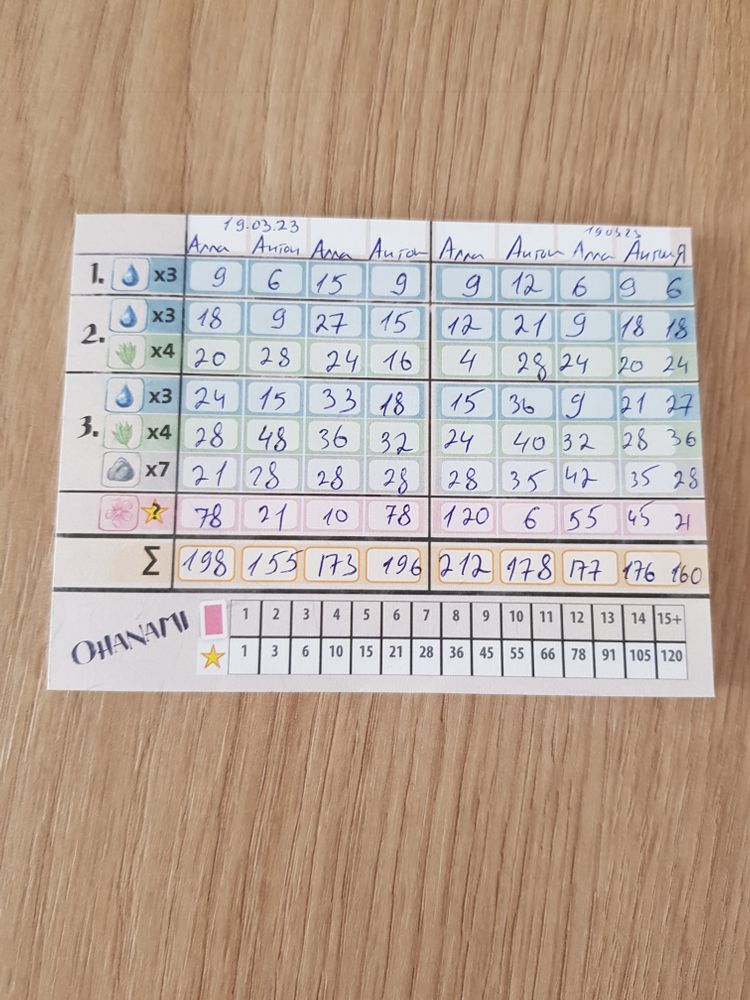 19.03.23 190323
Алла Антон Алла Антон Алла Антон Алла Антон Я
1. x3 9 6 15 9 9 12 6 9 6
2. x3 18 9 27 15 12 21 9 18 18
x4 20 28 24 16 4 28 24 20 24
x3 24 15 33 18 15 36 9 21 27
3. x4 28 48 36 32 24 40 32 28 36
x7 21 28 28 28 28 35 42 35 28
? 78 21 10 78 120 6 55 45 21
Σ 198 155 173 196 212 178 177 176 160
OHANAMI
1 2 3 4 5 6 7 8 9 10 11 12 13 14 15+
1 3 6 10 15 21 28 36 45 55 66 78 91 105 120